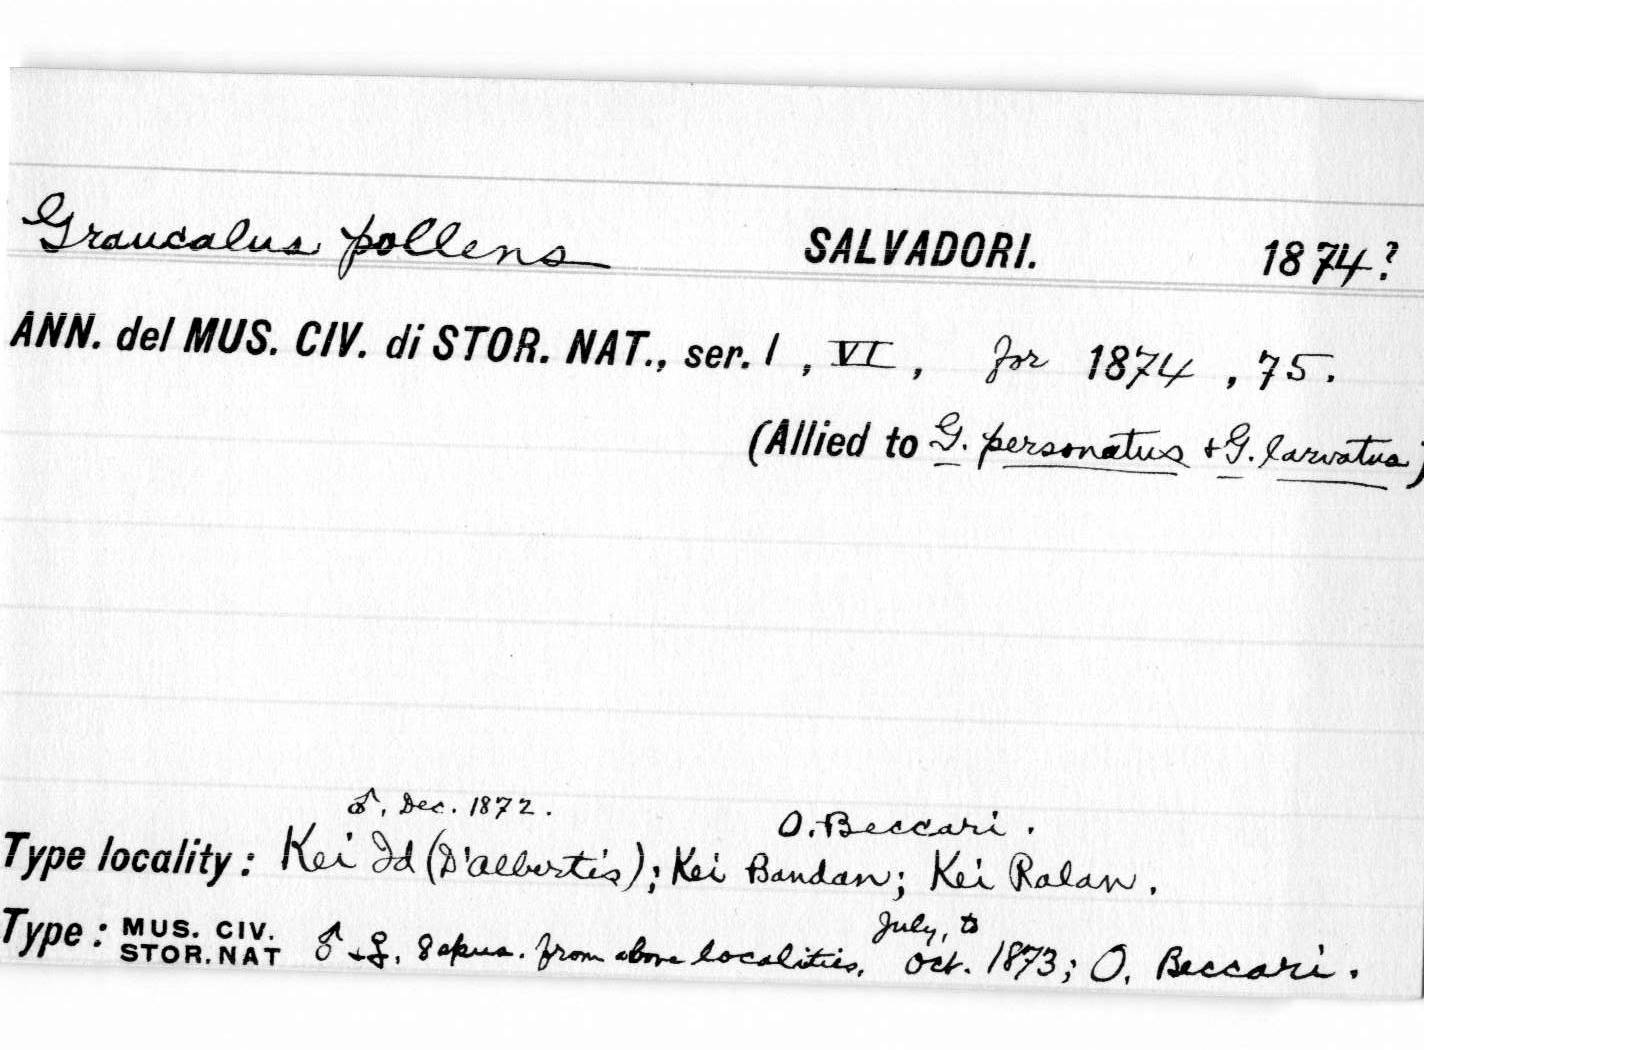 Graucalus pollens SALVADORI. 1874?
ANN. del MUS. CIV. di STOR. NAT., ser. I, VI, for 1874, 75.
(Allied to G. personatus + G. larvatus)
♂, Dec. 1872. O. Beccari.
Type locality: Kei Id (D'Albertis); Kei Bandan; Kei Ralan.
July, to
Type: MUS. CIV. STOR. NAT ♂ + ♀, 8 spns. from above localities, Oct. 1873; O. Beccari.